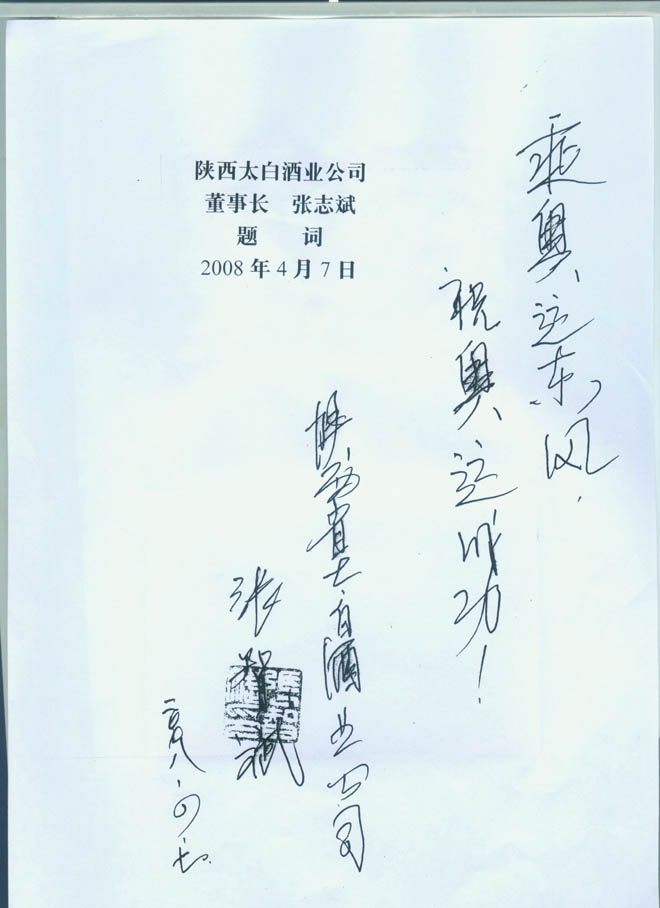 陕西太白酒业公司
董事长 张志斌
题 词
2008年4月7日
乘奥运东风，
祝奥运成功！
陕西省太白酒业公司
张智斌
二００八．四．七．